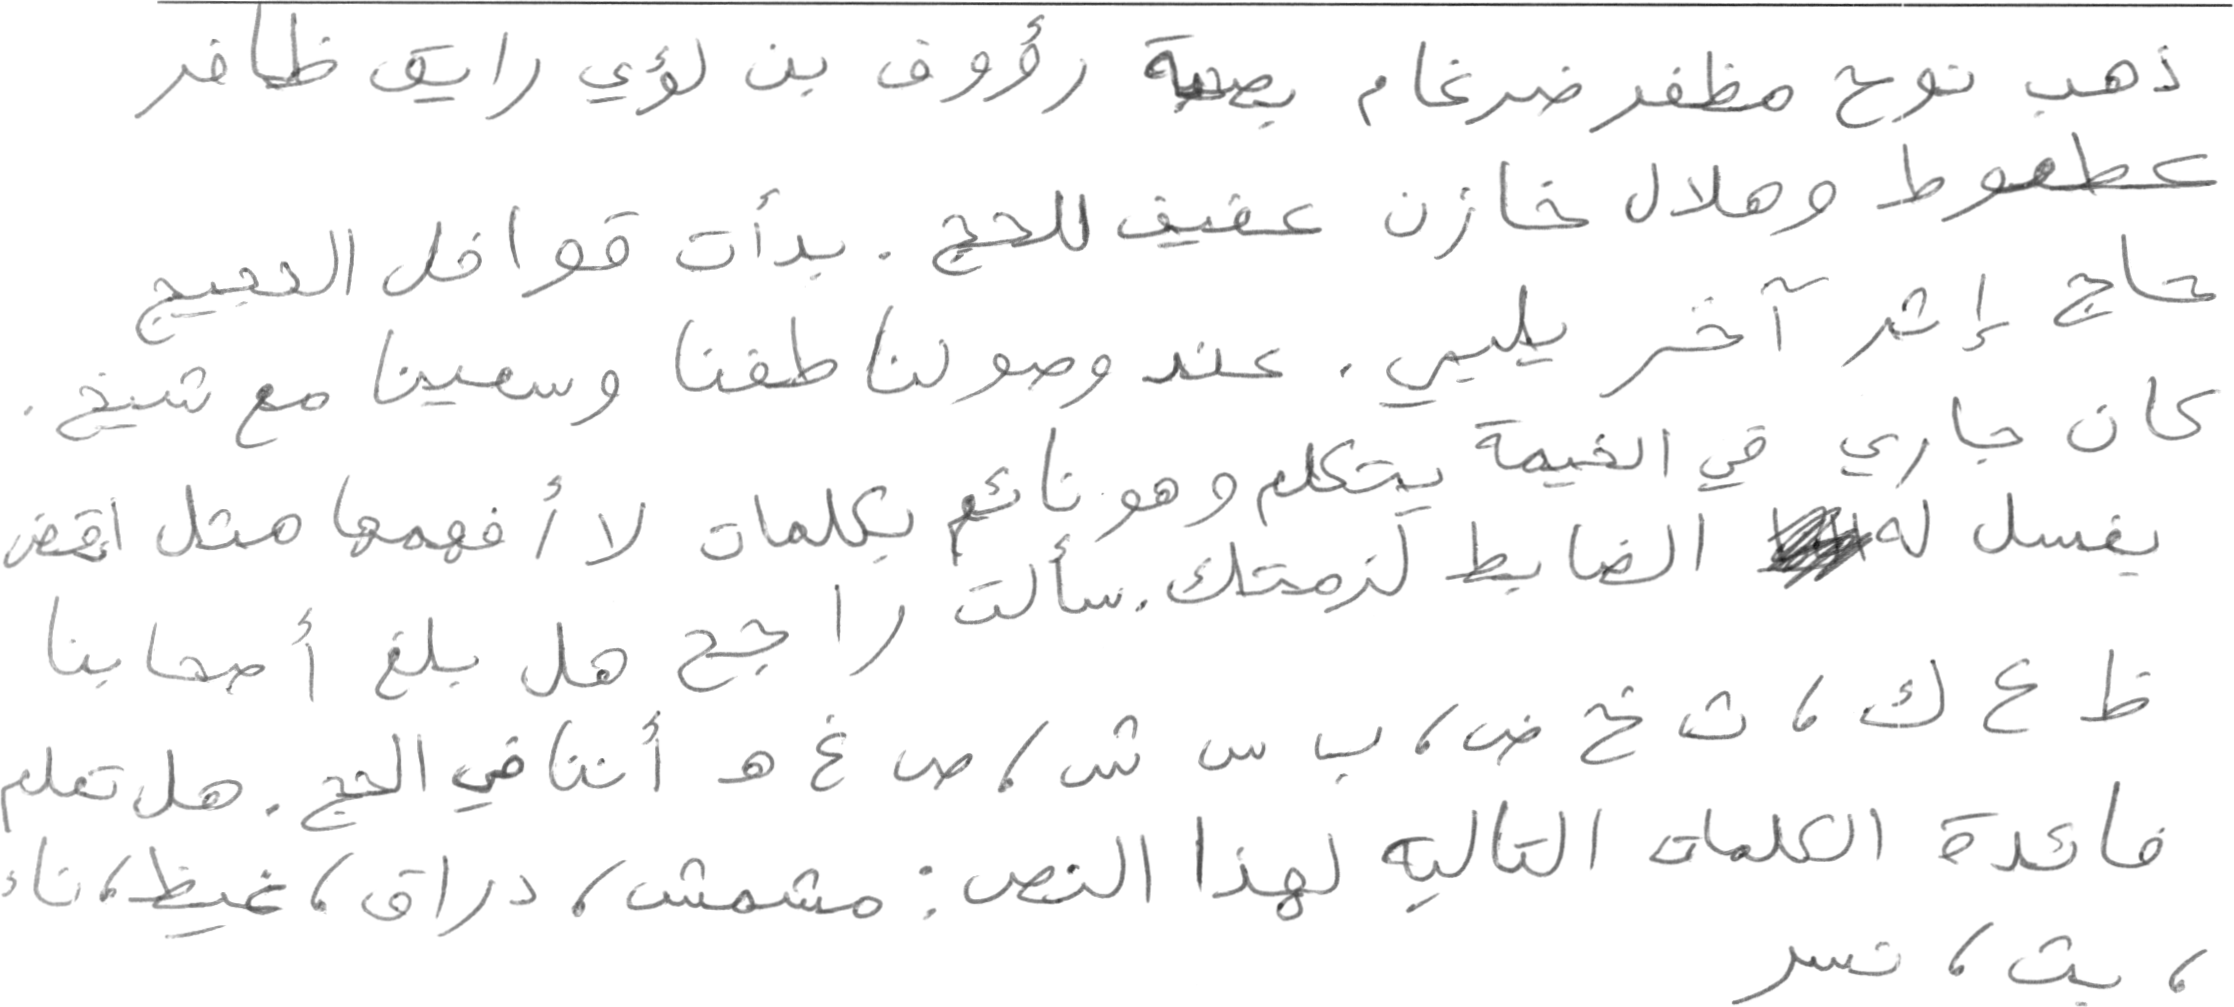 ذهب نوح مظفر ضرغام بصحبة رؤوف بن لؤي رايق ظافر
عطعوط وهلال خازن عفيف للحج . بدأت قوافل الحجيج
حاج إثر آخر يلبي . عند وصولنا طفنا وسعينا مع شيخ .
كان جاري في الخيمة يتكلم وهو نائم بكلمات لا أفهمها مثل
يغسل له الضابط لزمتك . سألت راجح هل بلغ أصحابنا
ظ ع ك ، ث خ ض ، ب س ش ، ص غ ه أننا في الحج . هل تعلم
فائدة الكلمات التاليه لهذا النص : مشمش ، دراق ، غيظ ، ناء
، بث ، نسر